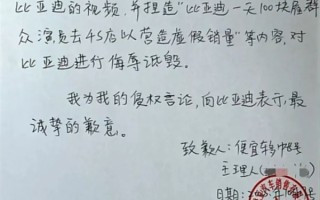 比亚迪的视频,并捏造“比亚迪一天100块雇群
众演员去4S店以营造虚假销量”等内容,对
比亚迪进行侮辱诋毁。
我为我的侵权言论,向比亚迪表示最
诚挚的歉意。
致歉人:便宜轿
主理人(
日期: